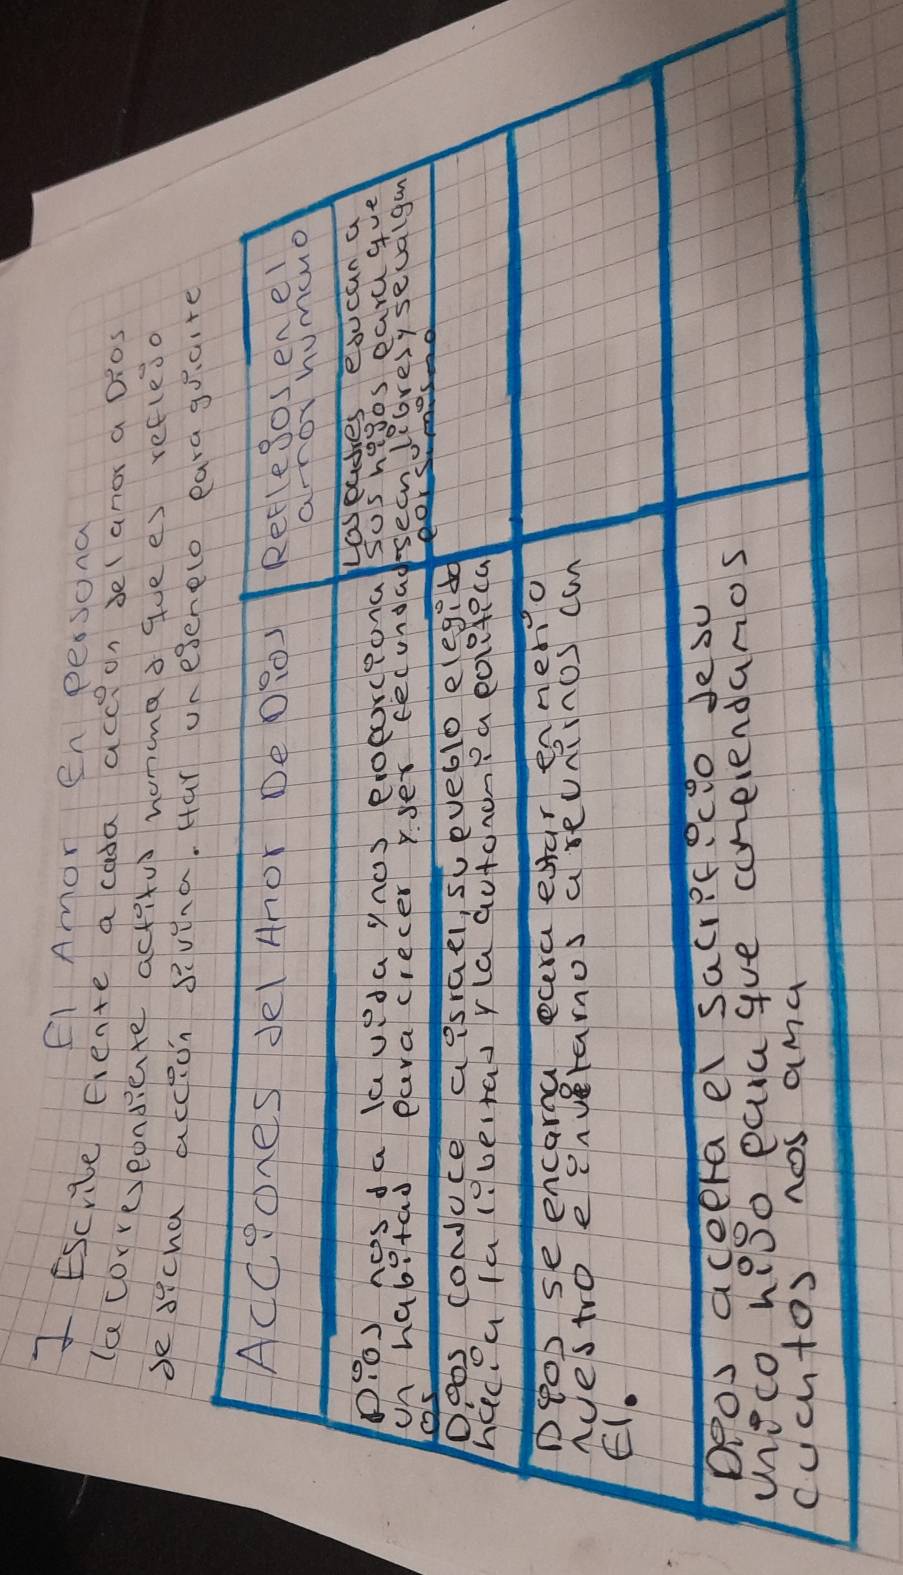 I El Amor En persona
Escribe Frente a cada acción del amor a Dios
la correspondiente actitud humana que es reflejo
de dicha acción divina. Hay un ejemplo para guiarte
Acciones del Amor De Dios
Reflejos en el
amor humano
Dios nos da la vida y nos proporciona
un habitad para crecer y ser fecundad
os
Los padres educan a
sus hijos para que
sean libres y sevalgan
por si mismo
Dios conduce a israel, su pueblo elegido
hacia la libertad y la autonomia politica
Dios se encarna para estar en medio
nuestro e invitarnos a reunirnos con
El.
Dios acepta el sacrificio de su
unico hijo para que comprendamos
cuantos nos ama